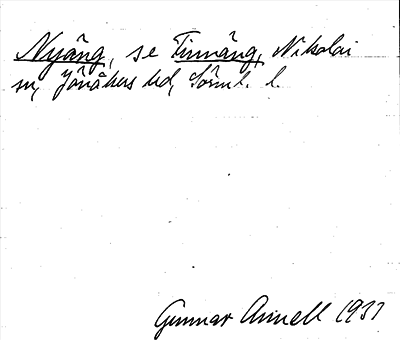 Nyäng, se Finnäng, Nikolai
sn, Jönåkers hd, Sörml. l.
Gunnar Arnell 1937